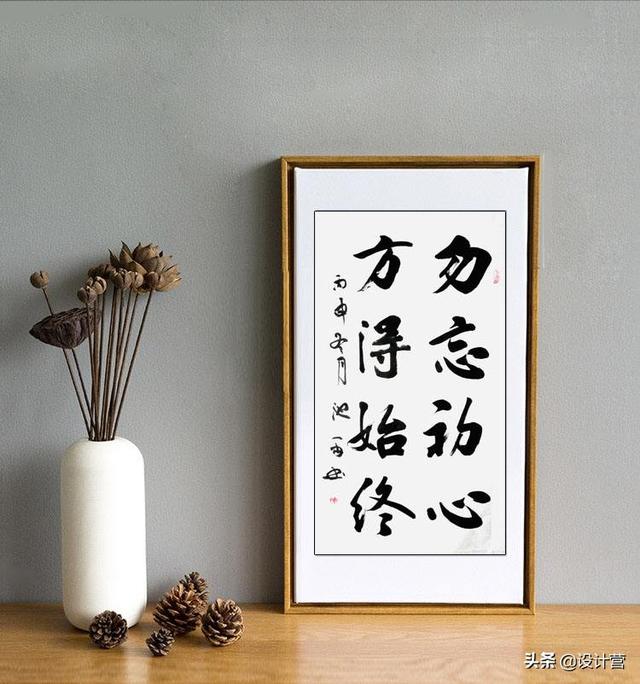 勿忘初心
方得始终
丙申冬月
头条 @设计营